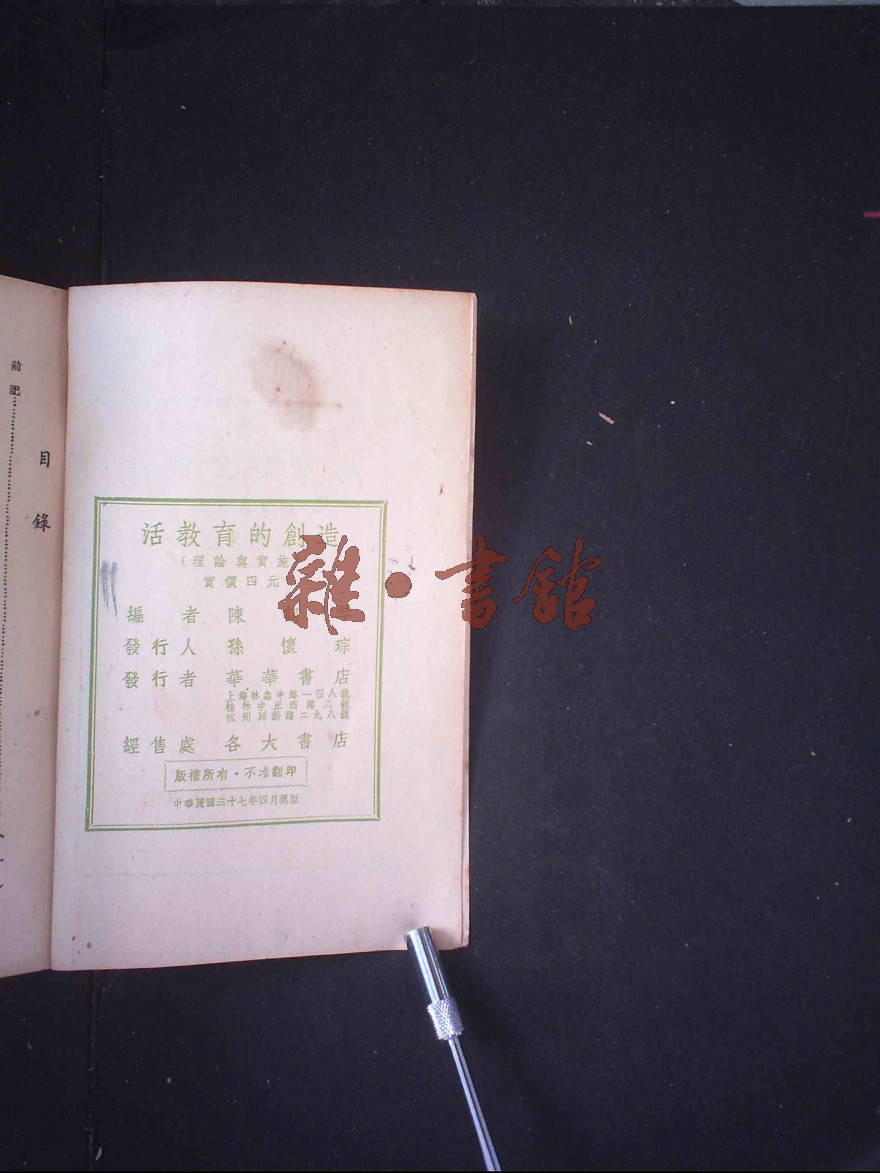 前記
目錄
活教育的創造
(理論與實施
實價四元
編者 陳
發行人 孫懷琮
發行者 華華書店
上海林森中路一四八號
桂林中正西路三號
杭州延齡路二九八號
經售處 各大書店
版權所有·不准翻印
中華民國三十七年四月版
雜·書館